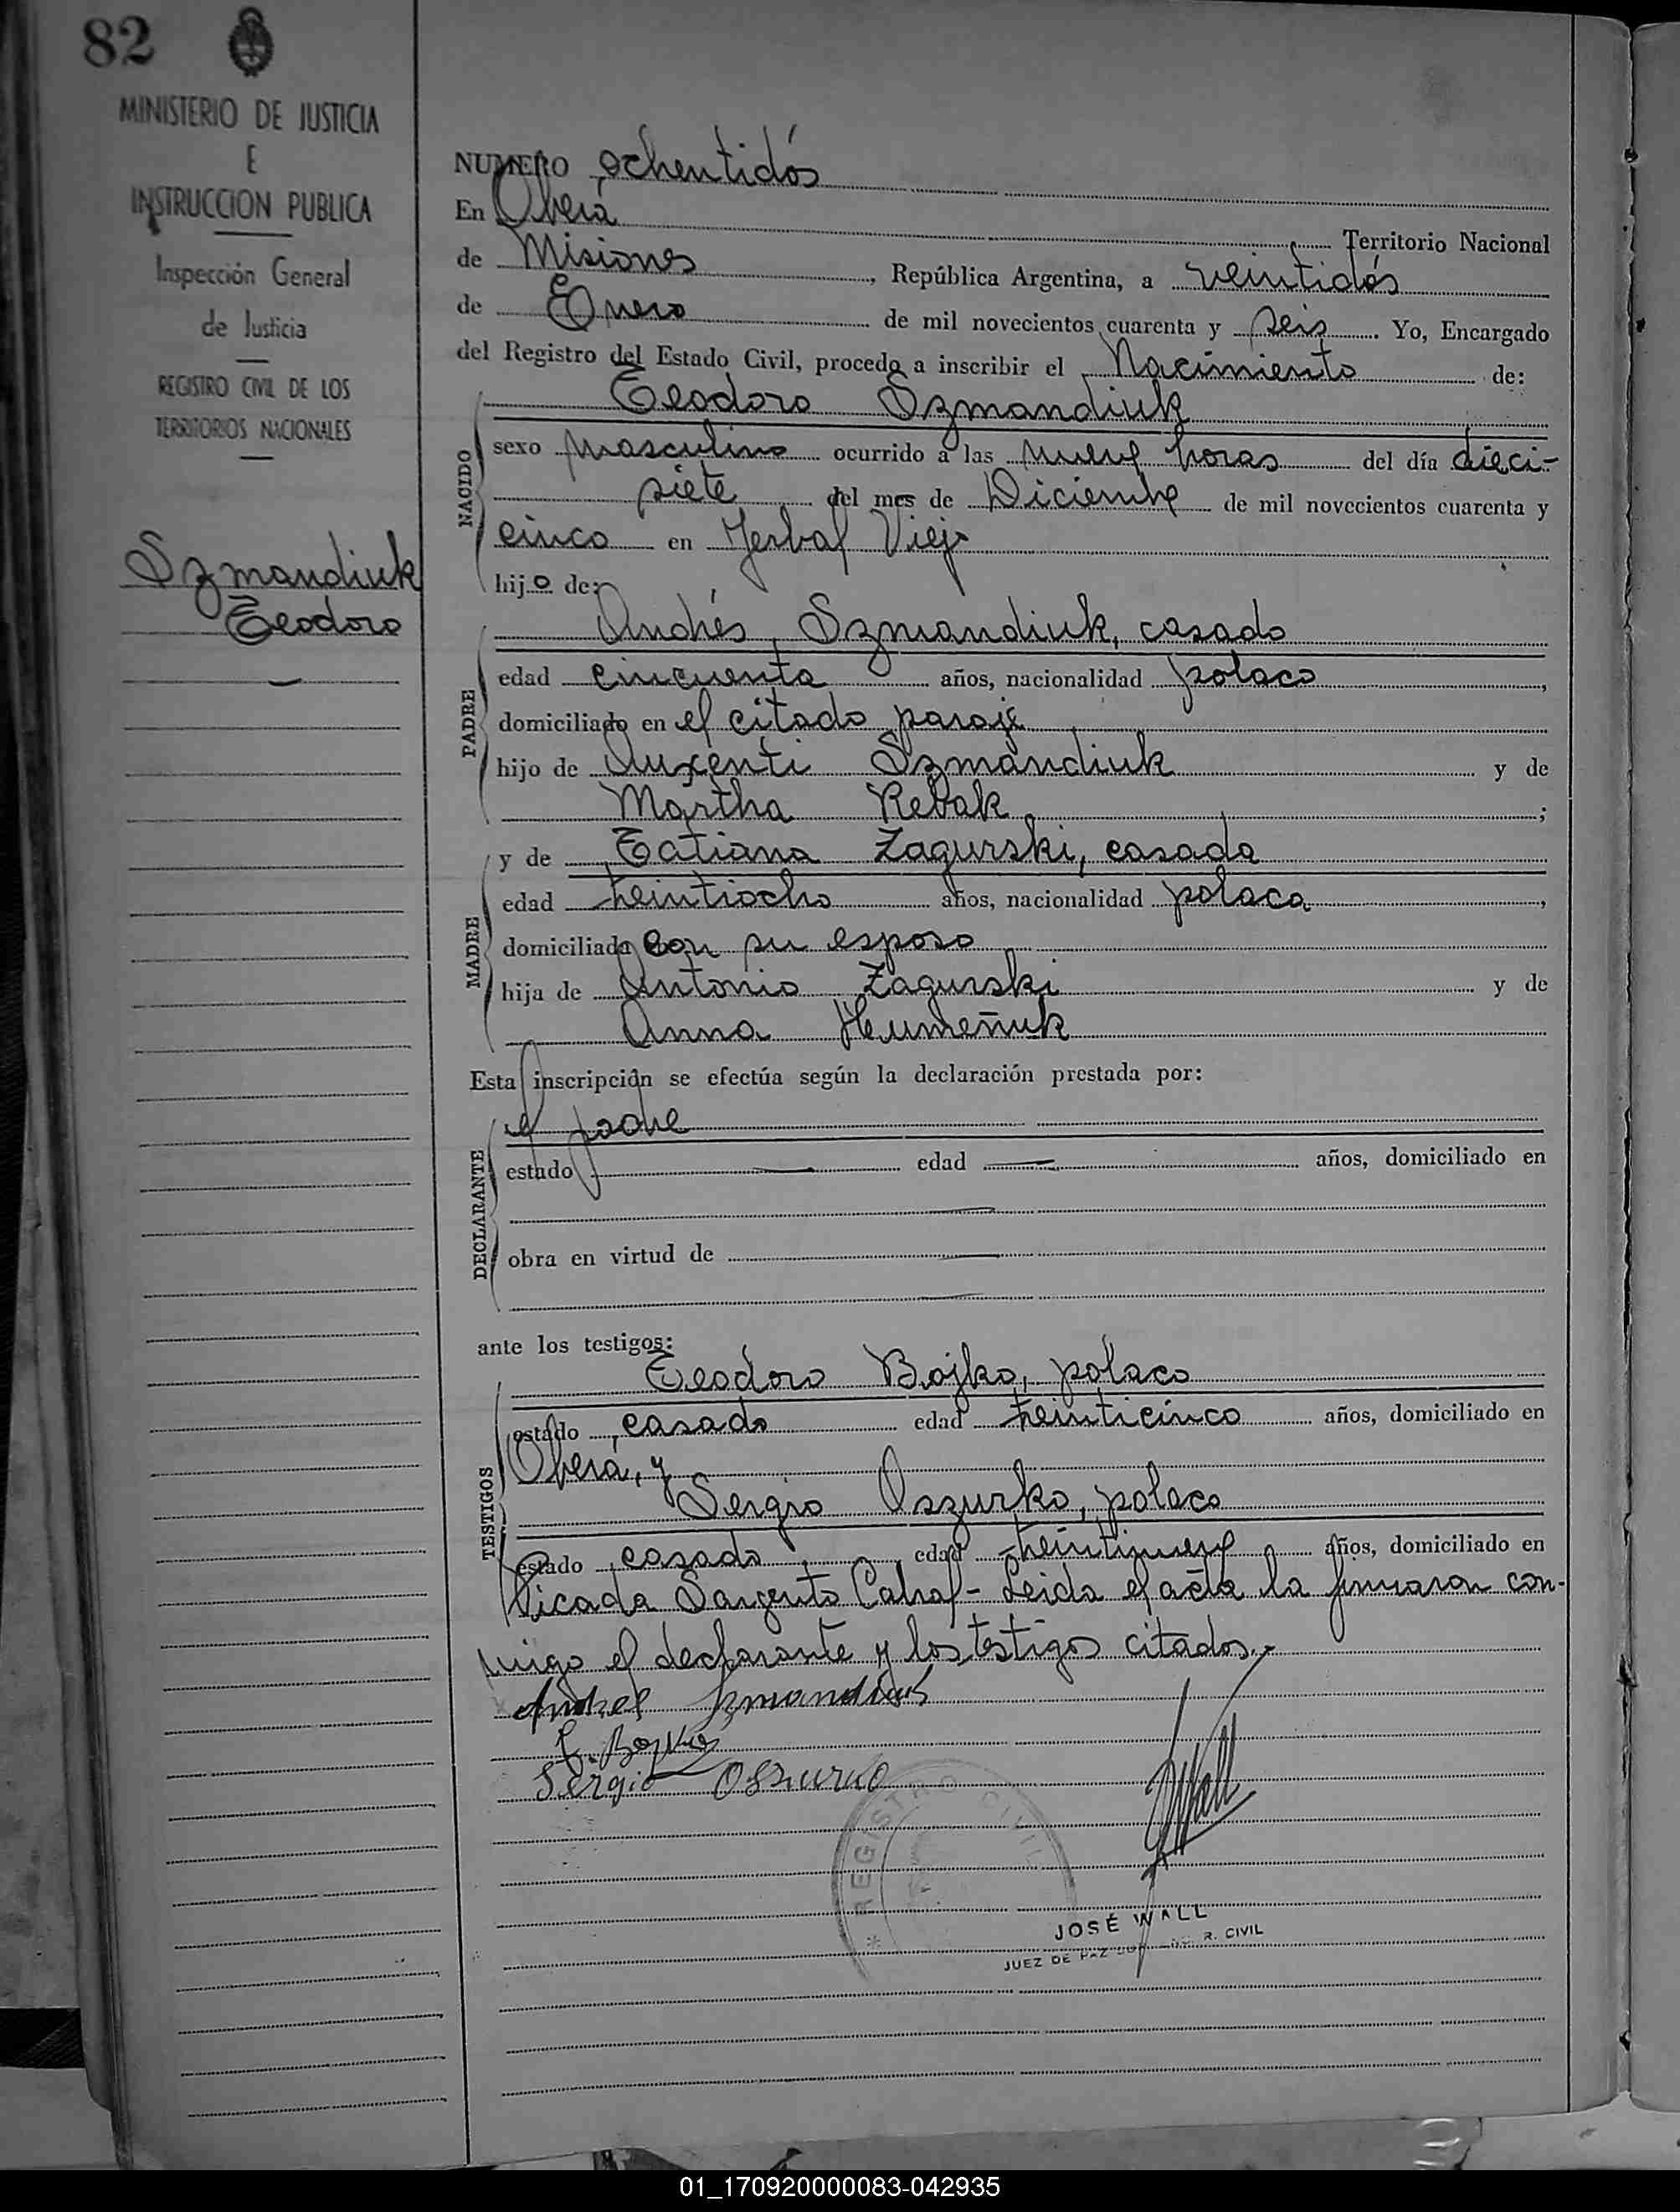 82
MINISTERIO DE JUSTICIA
E
INSTRUCCION PUBLICA
Inspección General
de Justicia
REGISTRO CIVIL DE LOS
TERRITORIOS NACIONALES
Szmandiuk
Teodoro
NUMERO ochentidós
En Oberá Territorio Nacional
de Misiones, República Argentina, a veintidós
de Enero de mil novecientos cuarenta y seis. Yo, Encargado
del Registro del Estado Civil, procedo a inscribir el Nacimiento de:
NACIDO
Teodoro Szmandiuk
sexo masculino ocurrido a las nueve horas del día dieci-
siete del mes de Diciembre de mil novecientos cuarenta y
cinco en Yerbal Viejo
hijo de:
PADRE
Andrés Szmandiuk, casado
edad cincuenta años, nacionalidad polaco,
domiciliado en el citado paraje
hijo de Auxenti Szmandiuk y de
Martha Rebak;
MADRE
y de Tatiana Zagurski, casada
edad treintiocho años, nacionalidad polaca,
domiciliada con su esposo
hija de Antonio Zagurski y de
Anna Humeñuk
Esta inscripción se efectúa según la declaración prestada por:
DECLARANTE
el padre
estado — edad — años, domiciliado en
—
obra en virtud de —
—
ante los testigos:
TESTIGOS
Teodoro Bojko, polaco
estado casado edad treinticinco años, domiciliado en
Oberá, y
Sergio Oszurko, polaco
estado casado edad treintinueve años, domiciliado en
Picada Sargento Cabral - Leida el acta la firmaron con-
migo el declarante y los testigos citados.-
Andrej Szmandiuk
Bojko
Sergio Oszurko
JWall
REGISTRO CIVIL
JOSÉ WALL
JUEZ DE PAZ R. CIVIL
01_170920000083-042935